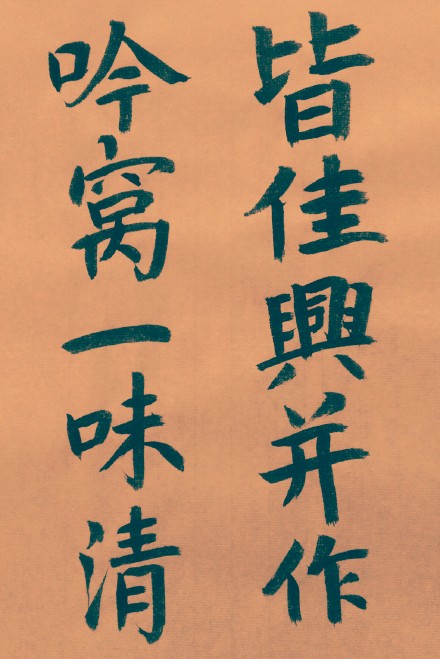 皆佳興并作
吟窝一味清